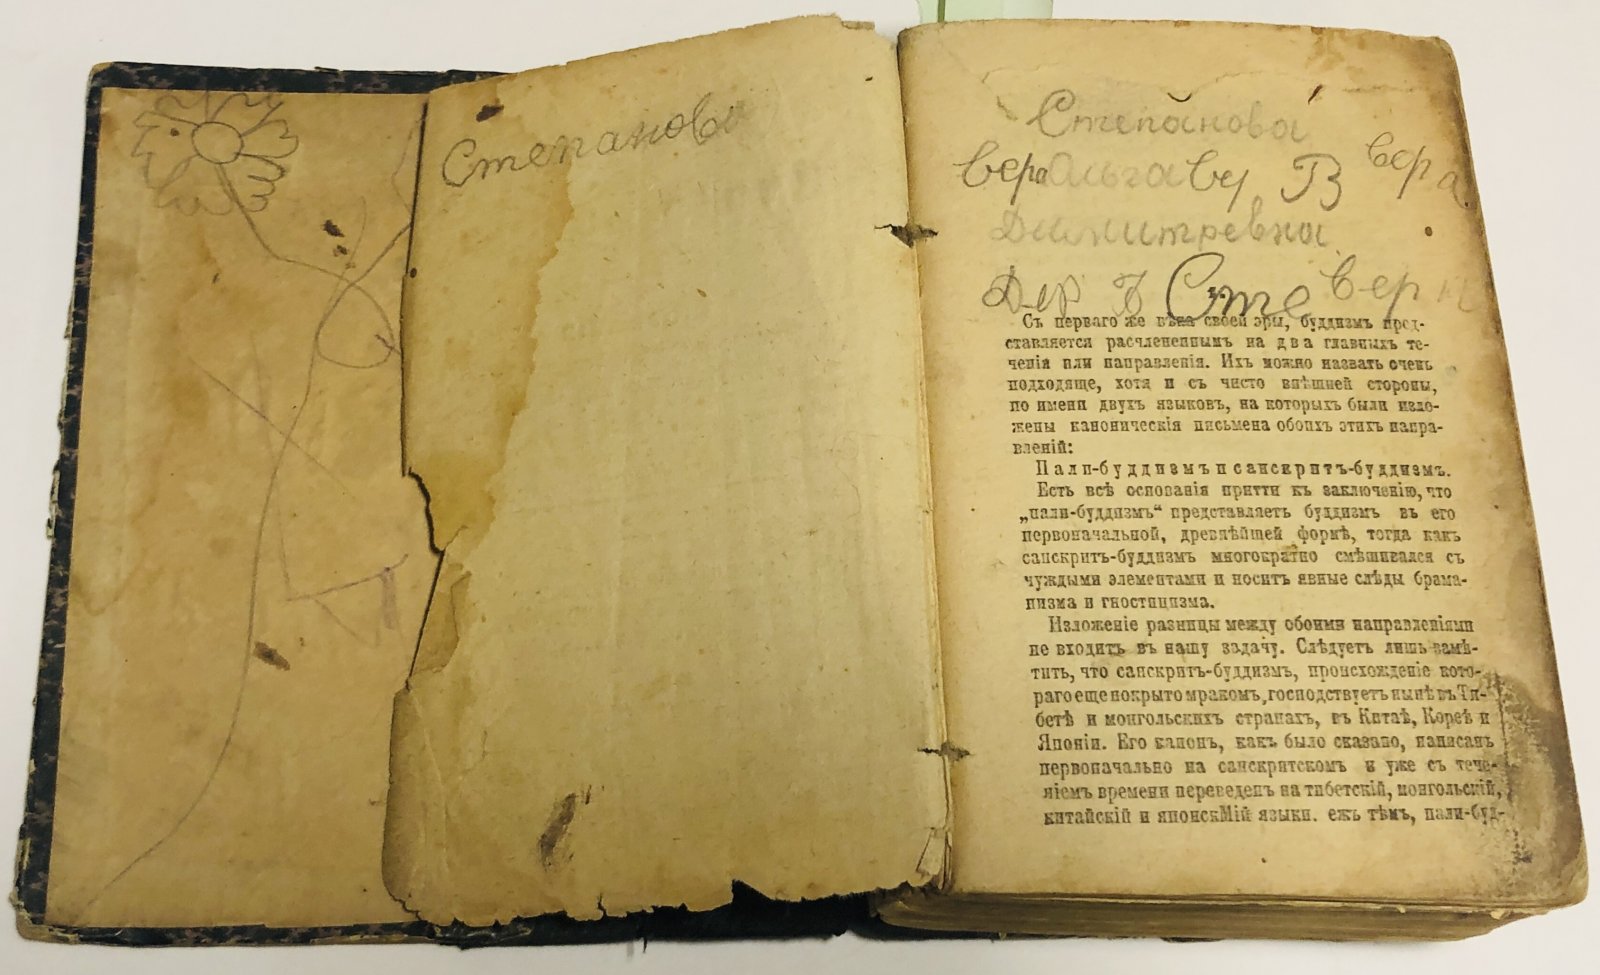 Степанова
Степанова
Вера Ольга Ву В Вера
Димитревна
Дер В Сте Вер
Съ перваго же вѣка своей эры, буддизмъ пред-
ставляется расчлененнымъ на два главныхъ те-
ченія или направленія. Ихъ можно назвать очень
подходяще, хотя и съ чисто внѣшней стороны,
по имени двухъ языковъ, на которыхъ были изло-
жены каноническія письмена обоихъ этихъ напра-
вленій:
Пали-буддизмъ и санскритъ-буддизмъ.
Есть всѣ основанія притти къ заключенію, что
„пали-буддизмъ“ представляетъ буддизмъ въ его
первоначальной, древнѣйшей формѣ, тогда какъ
санскритъ-буддизмъ многократно смѣшивался съ
чуждыми элементами и носитъ явные слѣды брама-
низма и гностицизма.
Изложеніе разницы между обоими направленіями
не входитъ въ нашу задачу. Слѣдуетъ лишь замѣ-
тить, что санскритъ-буддизмъ, происхожденіе кото-
раго еще покрыто мракомъ, господствуетъ нынѣ въ Ти-
бетѣ и монгольскихъ странахъ, въ Китаѣ, Кореѣ и
Японіи. Его канонъ, какъ было сказано, написанъ
первоначально на санскритскомъ и уже съ тече-
ніемъ времени переведенъ на тибетскій, монгольскій,
китайскій и японскМій языки. ежъ тѣмъ, пали-буд-